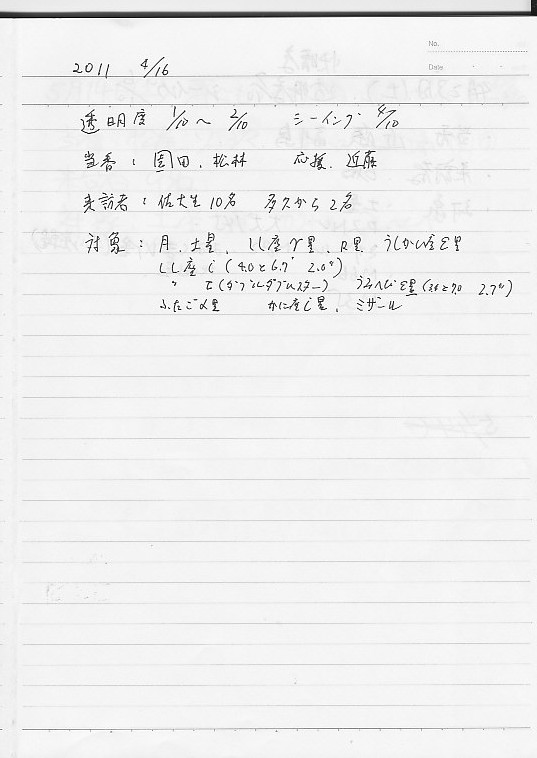 No.
Date
2011 4/16
透明度 1/10～ 2/10 シーイング 4/10
当番：園田、松林 応援、近藤
来訪者：佐大生10名 多久から2名
対象：月、土星、しし座γ星、R星 うしかい座ε星
しし座ι(4.0と6.7 2.0")
〃 τ(ダブルダブルスター) うみへびε星(3.8と7.0 2.7")
ふたごα星 かに座ι星、ミザール